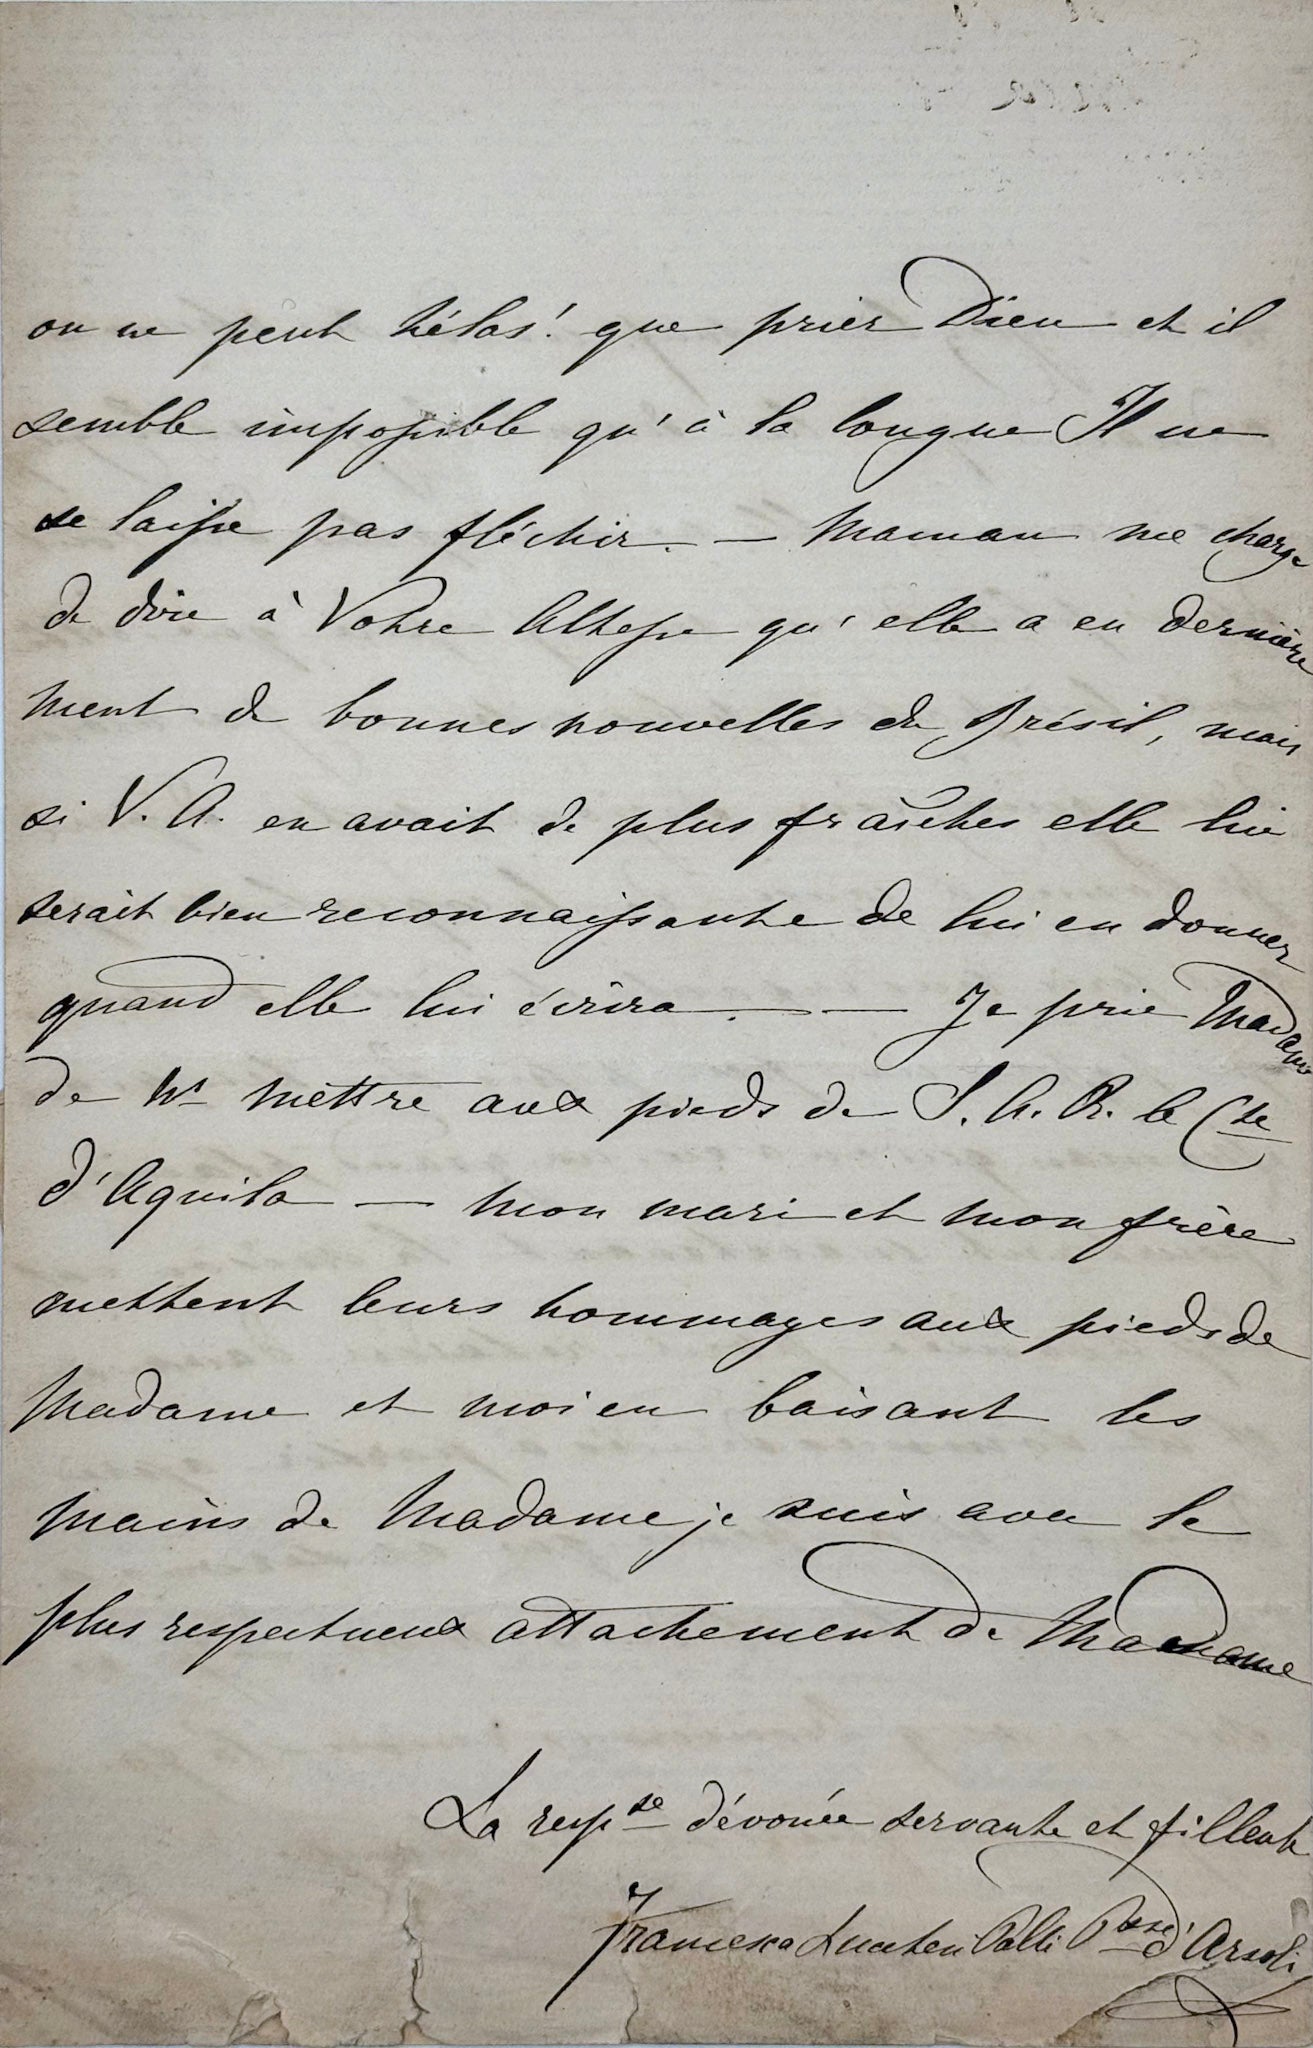 on ne peut hélas! que prier Dieu et il
semble impossible qu'à la longue Il ne
se laisse pas fléchir. — Maman me charge
de dire à Votre Altesse qu'elle a eu dernière
ment de bonnes nouvelles du Brésil, mais
si V. A. en avait de plus fraîches elle lui
serait bien reconnaissante de lui en donner
quand elle lui écrira. — Je prie Madame
de me mettre aux pieds de S. A. R. le Cte
d'Aquila — Mon mari et mon frère
mettent leurs hommages aux pieds de
Madame et moi en baisant les
mains de Madame je suis avec le
plus respectueux attachement de Madame
La respse dévouée servante et filleule
Francesca Lucchesi Palli Psse d'Arsoli